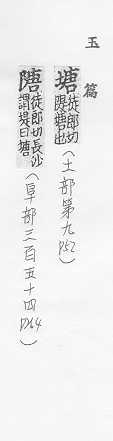 玉篇
塘 徒郎切
隄塘也
(土部第九P52)
徒郎切長沙
謂堤曰塘
(阜部三百五十四